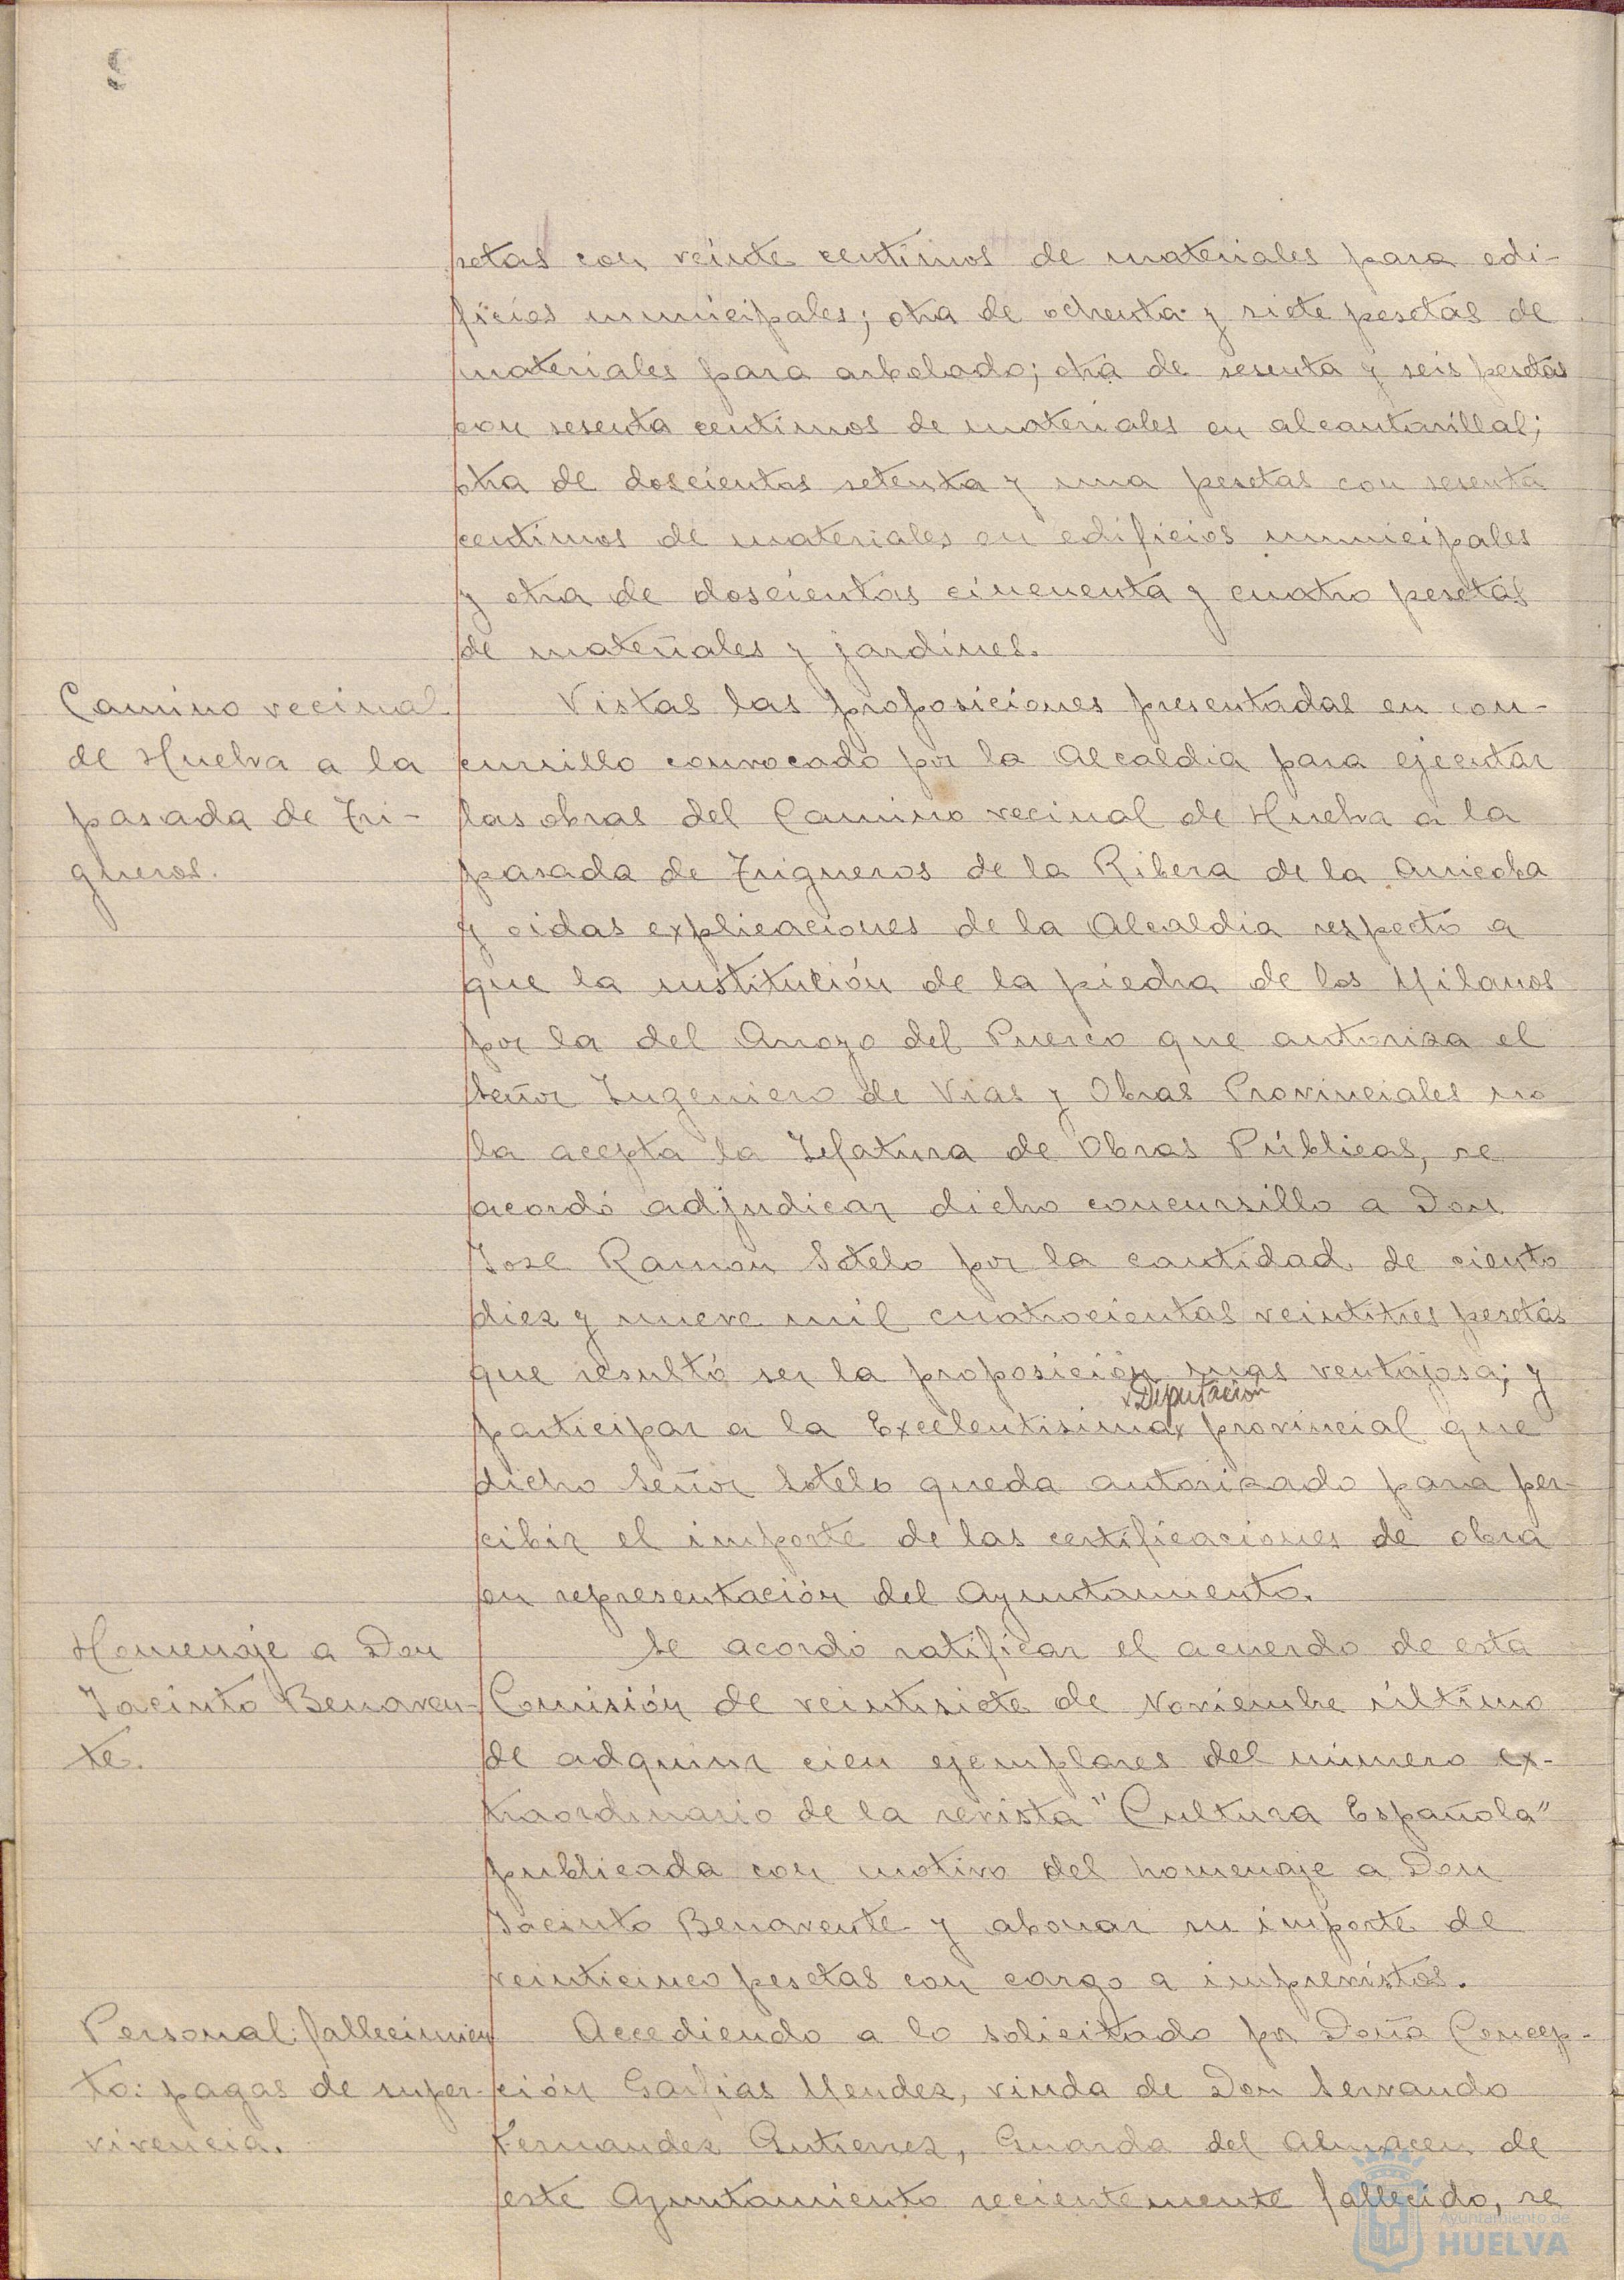 setas con veinte centimos de materiales para edi-
ficios municipales; otra de ochenta y siete pesetas de
materiales para arbolado; otra de sesenta y seis pesetas
con sesenta centimos de materiales en alcantarillal;
otra de doscientas setenta y una pesetas con sesenta
centimos de materiales en edificios municipales
y otra de doscientas cincuenta y cuatro pesetas
de materiales y jardines.
Camino vecinal
de Huelva a la
pasada de Tri-
gueros.
Vistas las proposiciones presentadas en con-
cursillo convocado por la Alcaldia para ejecutar
las obras del Camino vecinal de Huelva a la
pasada de Trigueros de la Ribera de la Anicoba
y oidas explicaciones de la Alcaldia respecto a
que la sustitución de la piedra de los Milanos
por la del Arroyo del Puerco que autoriza el
Señor Ingeniero de Vias y Obras Provinciales no
la acepta la Jefatura de Obras Públicas, se
acordó adjudicar dicho concursillo a Don
Jose Ramon Sotelo por la cantidad de ciento
diez y nueve mil cuatrocientas veintitres pesetas
que resultó ser la proposición mas ventajosa; y
x Diputación
participar a la Excelentisima x provincial que
dicho Señor Sotelo queda autorizado para per-
cibir el importe de las certificaciones de obra
en representación del Ayuntamiento.
Homenaje a Don
Jacinto Benaven-
te.
Se acordó ratificar el acuerdo de esta
Comisión de veintisiete de Noviembre último
de adquirir cien ejemplares del número ex-
traordinario de la revista "Cultura Española"
publicada con motivo del homenaje a Don
Jacinto Benavente y abonar su importe de
veinticinco pesetas con cargo a imprevistos.
Personal: fallecimien
to: pagas de super-
vivencia.
Accediendo a lo solicitado por Doña Concep-
ción Garfias Mendez, viuda de Don Servando
Fernandez Gutierrez, Guarda del Almacen de
este Ayuntamiento recientemente fallecido, se
Ayuntamiento de
HUELVA